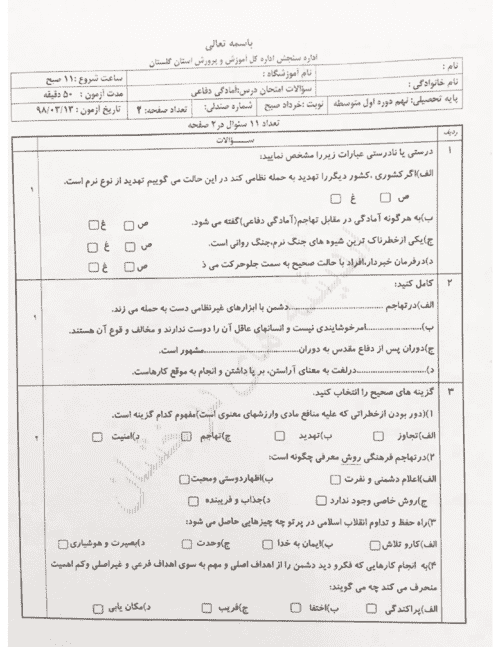 باسمه تعالی
اداره سنجش اداره کل آموزش و پرورش استان گلستان
نام :
نام آموزشگاه :
ساعت شروع :۱۱ صبح
نام خانوادگی :
سؤالات امتحان درس:آمادگی دفاعی
مدت آزمون : ۵۰ دقیقه
پایه تحصیلی: نهم دوره اول متوسطه
نوبت :خرداد صبح
شماره صندلی:
تعداد صفحه: ۲
تاریخ آزمون : ۹۸/۰۳/۱۳
تعداد ۱۱ سئوال در۲ صفحه
ردیف
ســـؤالات
۱
درستی یا نادرستی عبارات زیررا مشخص نمایید:
الف)اگرکشوری ،کشور دیگررا تهدید به حمله نظامی کند در این حالت می گوییم تهدید از نوع نرم است.
ص غ
۱
ب)به هرگونه آمادگی در مقابل تهاجم(آمادگی دفاعی)گفته می شود. ص غ
ج)یکی ازخطرناک ترین شیوه های جنگ نرم،جنگ روانی است. ص غ
د)درفرمان خبردار،افراد با حالت صحیح به سمت جلوحرکت می ذ ص غ
۲
کامل کنید:
الف)درتهاجم ........................دشمن با ابزارهای غیرنظامی دست به حمله می زند.
ب)......................امرخوشایندی نیست و انسانهای عاقل آن را دوست ندارند و مخالف و قوع آن هستند.
۱
ج)دوران پس از دفاع مقدس به دوران........................مشهور است.
د)........................درلغت به معنای آراستن، بر پا داشتن و انجام به موقع کارهاست.
۳
گزینه های صحیح را انتخاب کنید.
۱)(دور بودن ازخطراتی که علیه منافع مادی وارزشهای معنوی است)مفهوم کدام گزینه است.
۲
الف)تجاوز ب)تهدید ج)تهاجم د)امنیت
۲)درتهاجم فرهنگی روش معرفی چگونه است:
الف)اعلام دشمنی و نفرت ب)اظهاردوستی ومحبت
ج)روش خاصی وجود ندارد د)جذاب و فریبنده
۳)راه حفظ و تداوم انقلاب اسلامی در پرتو چه چیزهایی حاصل می شود:
الف)کارو تلاش ب)ایمان به خدا ج)وحدت د)بصیرت و هوشیاری
۴)به انجام کارهایی که فکرو دید دشمن را از اهداف اصلی و مهم به سوی اهداف فرعی و غیراصلی وکم اهمیت
منحرف می کند چه می گویند:
الف)پراکندگی ب)اختفا ج)فریب د)مکان یابی